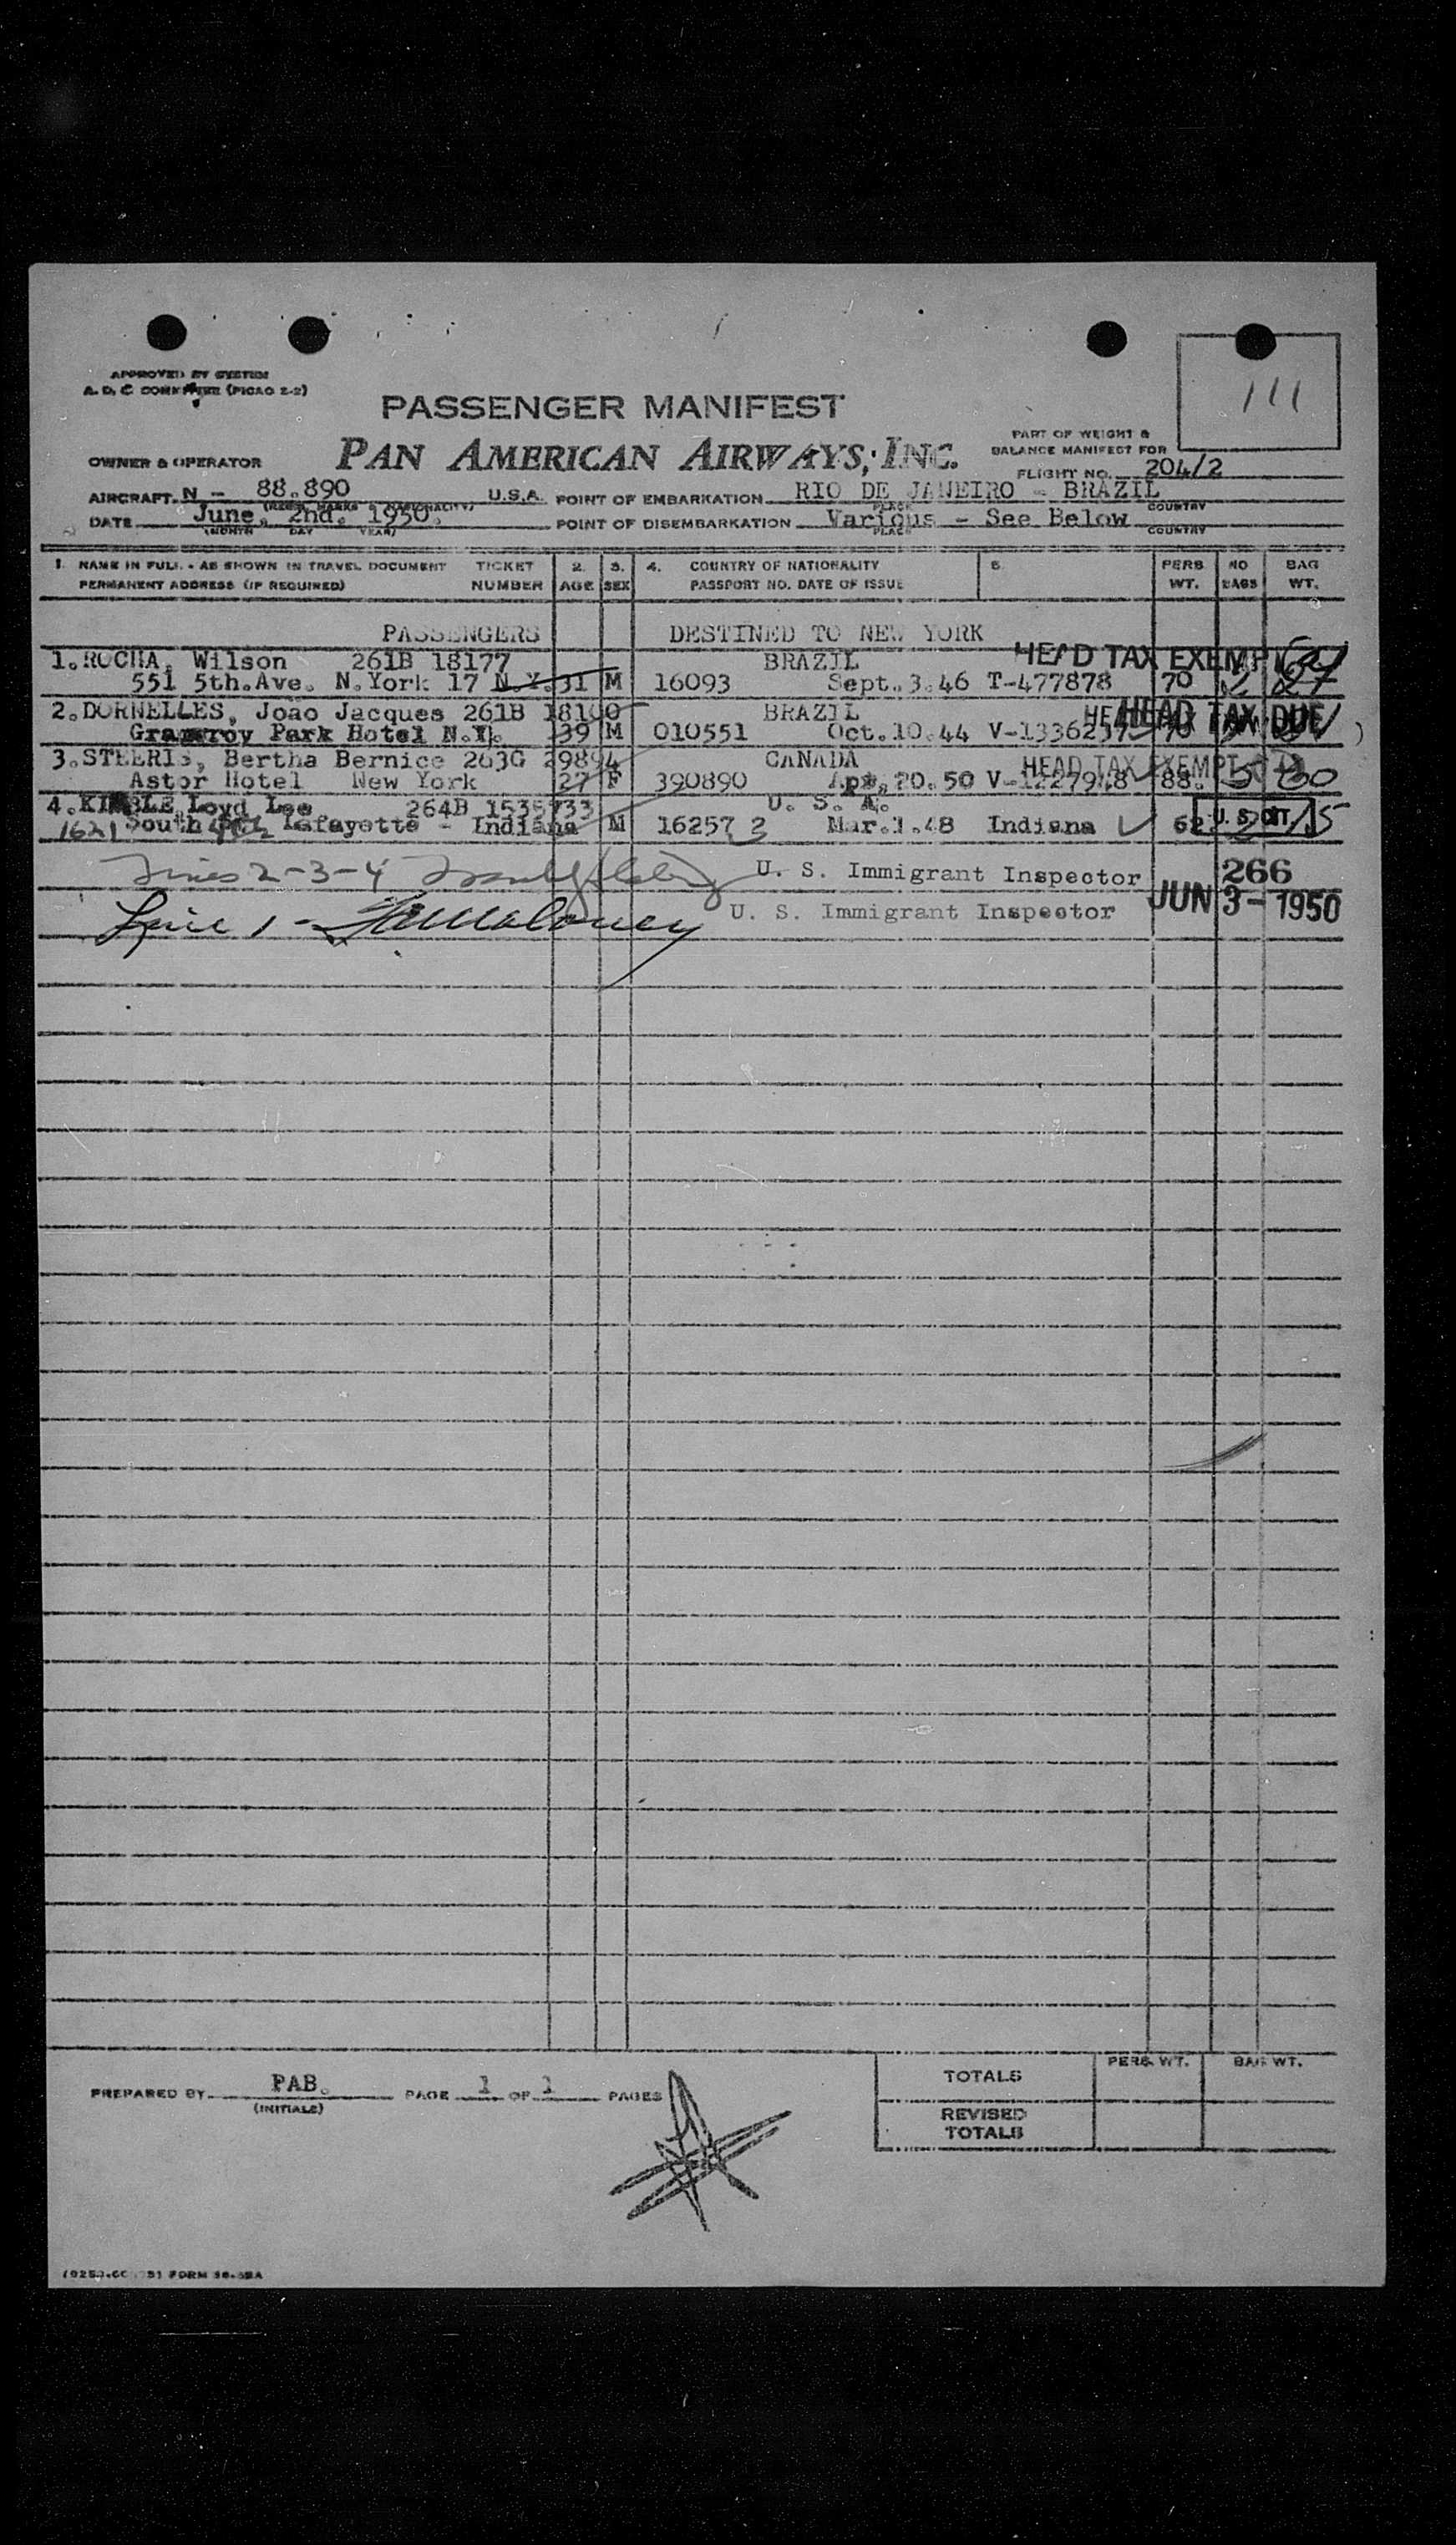 111
APPROVED BY SYSTEM
A. D. C COMMITTEE (PICAO 2-2)
PASSENGER MANIFEST
PART OF WEIGHT &
BALANCE MANIFEST FOR
OWNER & OPERATOR PAN AMERICAN AIRWAYS, INC.
FLIGHT NO. 204/2
AIRCRAFT. N - 88.890 U.S.A. POINT OF EMBARKATION RIO DE JANEIRO - BRAZIL
PLACE COUNTRY
DATE June, 2nd. 1950. POINT OF DISEMBARKATION Various - See Below
(MONTH DAY YEAR) PLACE COUNTRY
1. NAME IN FULL - AS SHOWN IN TRAVEL DOCUMENT TICKET 2. 3. 4. COUNTRY OF NATIONALITY 5. PERS NO BAG
PERMANENT ADDRESS (IF REQUIRED) NUMBER AGE SEX PASSPORT NO. DATE OF ISSUE WT. BAGS WT.
PASSENGERS DESTINED TO NEW YORK
1. ROCHA, Wilson 261B 18177 BRAZIL HEAD TAX EXEMPT
551 5th.Ave. N.York 17 N.Y. 31 M 16093 Sept.3.46 T-477878 70 2 27
2. DORNELLES, Joao Jacques 261B 18190 BRAZIL HEAD TAX DUE
Park Hotel N.Y. 39 M 010551 Oct.10.44
3. Bertha Bernice 263G 29894 CANADA HEAD TAX EXEMPT
Astor Hotel New York 27 F 390890 20.50 V-1227948 88. 5 60
4. KIMBLE Loyd Lee 264B 1535733 U. S. A.
1621 South Lafayette - Indiana M 16257 2 Mar.1.48 Indiana 62 U. S. CIT. 15
Lines 2-3-4 U. S. Immigrant Inspector 266
Line 1 - Maloney U. S. Immigrant Inspector JUN 3 - 1950
PREPARED BY PAB. PAGE 1 OF 1 PAGES
(INITIALS)
PERS. WT. BAG WT.
TOTALS
REVISED
TOTALS